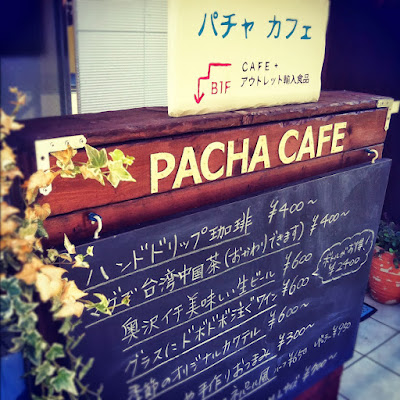 パチャ カフェ
CAFE +
アウトレット輸入食品
B1F
PACHA CAFE
ハンドドリップ珈琲 ¥400〜
台湾中国茶(おかわりできます) ¥400〜
奥沢イチ美味い生ビール ¥600
グラスにドボドボ注ぐワイン ¥600〜
¥2400
季節のオリジナルカクテル ¥600〜
手作りおつまみ ¥300〜